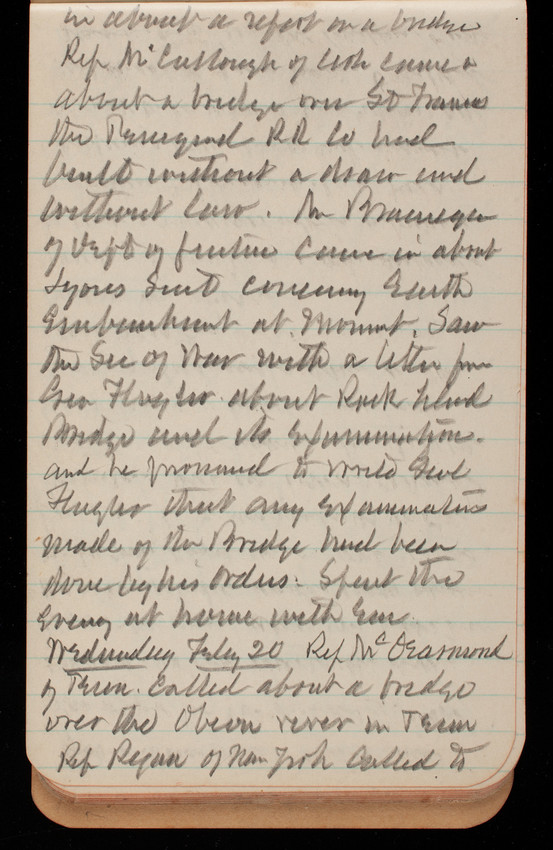 in about a report on a bridge
Rep McCullough of Ark came
about a bridge over St Francis
the Paragould RR Co had
built without a draw and
without law. Mr Brannegan
of Dept of Justice came in about
Sayers suit concerning Earth
Embankment at. Saw
the Sec of War with a letter from
Gen Flagler about Rock Island
Bridge and its Examination.
and he promised to write Genl
Flagler that any Examination
made of the Bridge had been
done by his Orders. Spent the
Evening at home with Em
Wednesday Feby 20 Rep McDearmond
of Tenn. called about a bridge
over the Obeon river in Tenn
Rep of New York called to